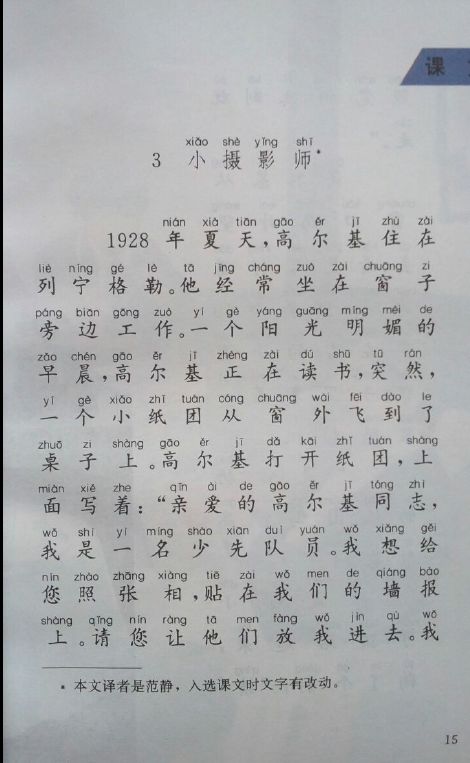 课
xiǎo shè yǐng shī
3 小摄影师*
nián xià tiān gāo ěr jī zhù zài
1928 年夏天,高尔基住在
liè níng gé lè tā jīng cháng zuò zài chuāng zi
列宁格勒。他经常坐在窗子
páng biān gōng zuò yí gè yáng guāng míng mèi de
旁边工作。一个阳光明媚的
zǎo chén gāo ěr jī zhèng zài dú shū tū rán
早晨,高尔基正在读书,突然,
yí gè xiǎo zhǐ tuán cóng chuāng wài fēi dào le
一个小纸团从窗外飞到了
zhuō zi shàng gāo ěr jī dǎ kāi zhǐ tuán shàng
桌子上。高尔基打开纸团,上
miàn xiě zhe qīn ài de gāo ěr jī tóng zhì
面写着:“亲爱的高尔基同志,
wǒ shì yì míng shào xiān duì yuán wǒ xiǎng gěi
我是一名少先队员。我想给
nín zhào zhāng xiàng tiē zài wǒ men de qiáng bào
您照张相,贴在我们的墙报
shàng qǐng nín ràng tā men fàng wǒ jìn qù wǒ
上。请您让他们放我进去。我
* 本文译者是范静,入选课文时文字有改动。
15